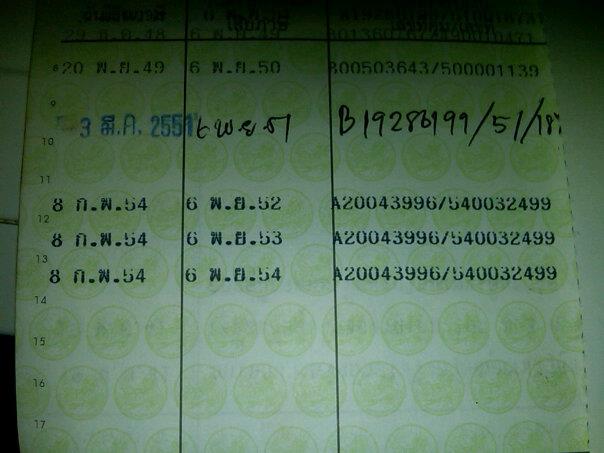 8 20 พ.ย.49 6 พ.ย.50 B00503643/500001139
9
3 มี.ค. 2551 6 พย 51 B19286199/51/18
10
11
8 ก.พ.54 6 พ.ย.52 A20043996/540032499
12
8 ก.พ.54 6 พ.ย.53 A20043996/540032499
13
8 ก.พ.54 6 พ.ย.54 A20043996/540032499
14
15
16
17